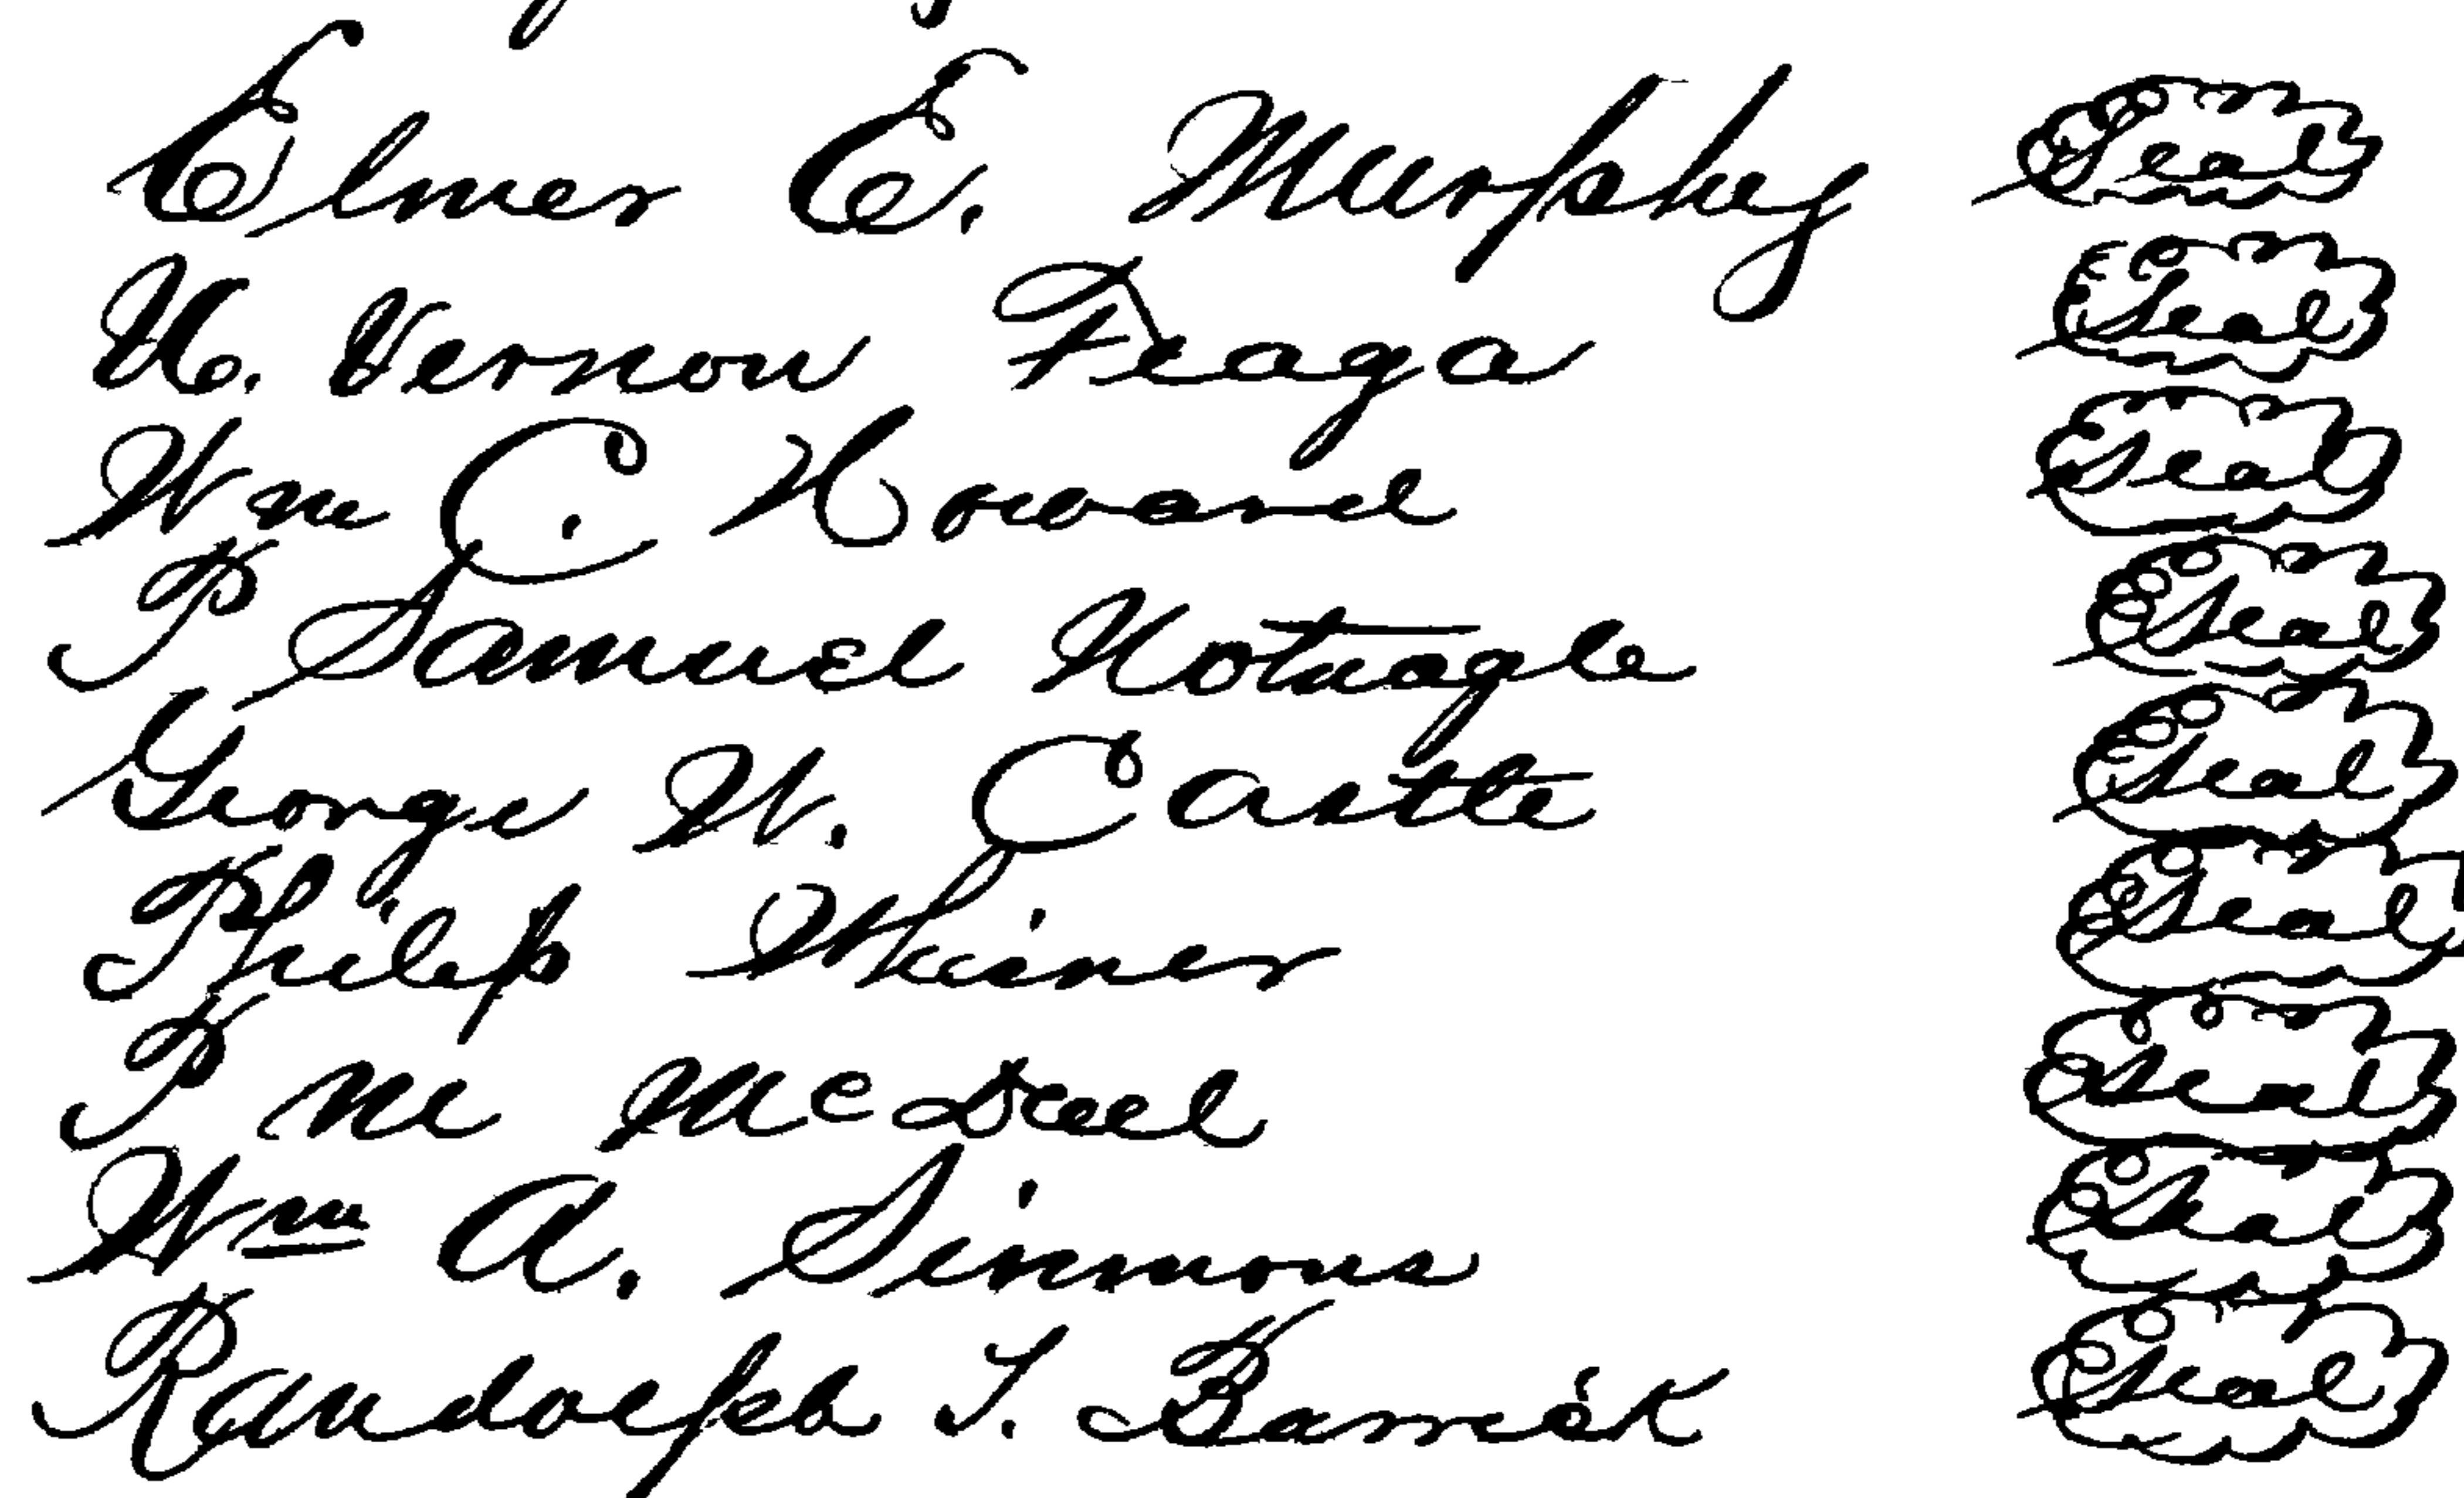 Elmer E. Murphey Seal
U. Vernon Seal
Wm C. Howard Seal
P Samuel Notnagle Seal
George W. Castle Seal
Philip Seal
P Seal
Wm A. Simmons Seal
Randolph Barrick Seal